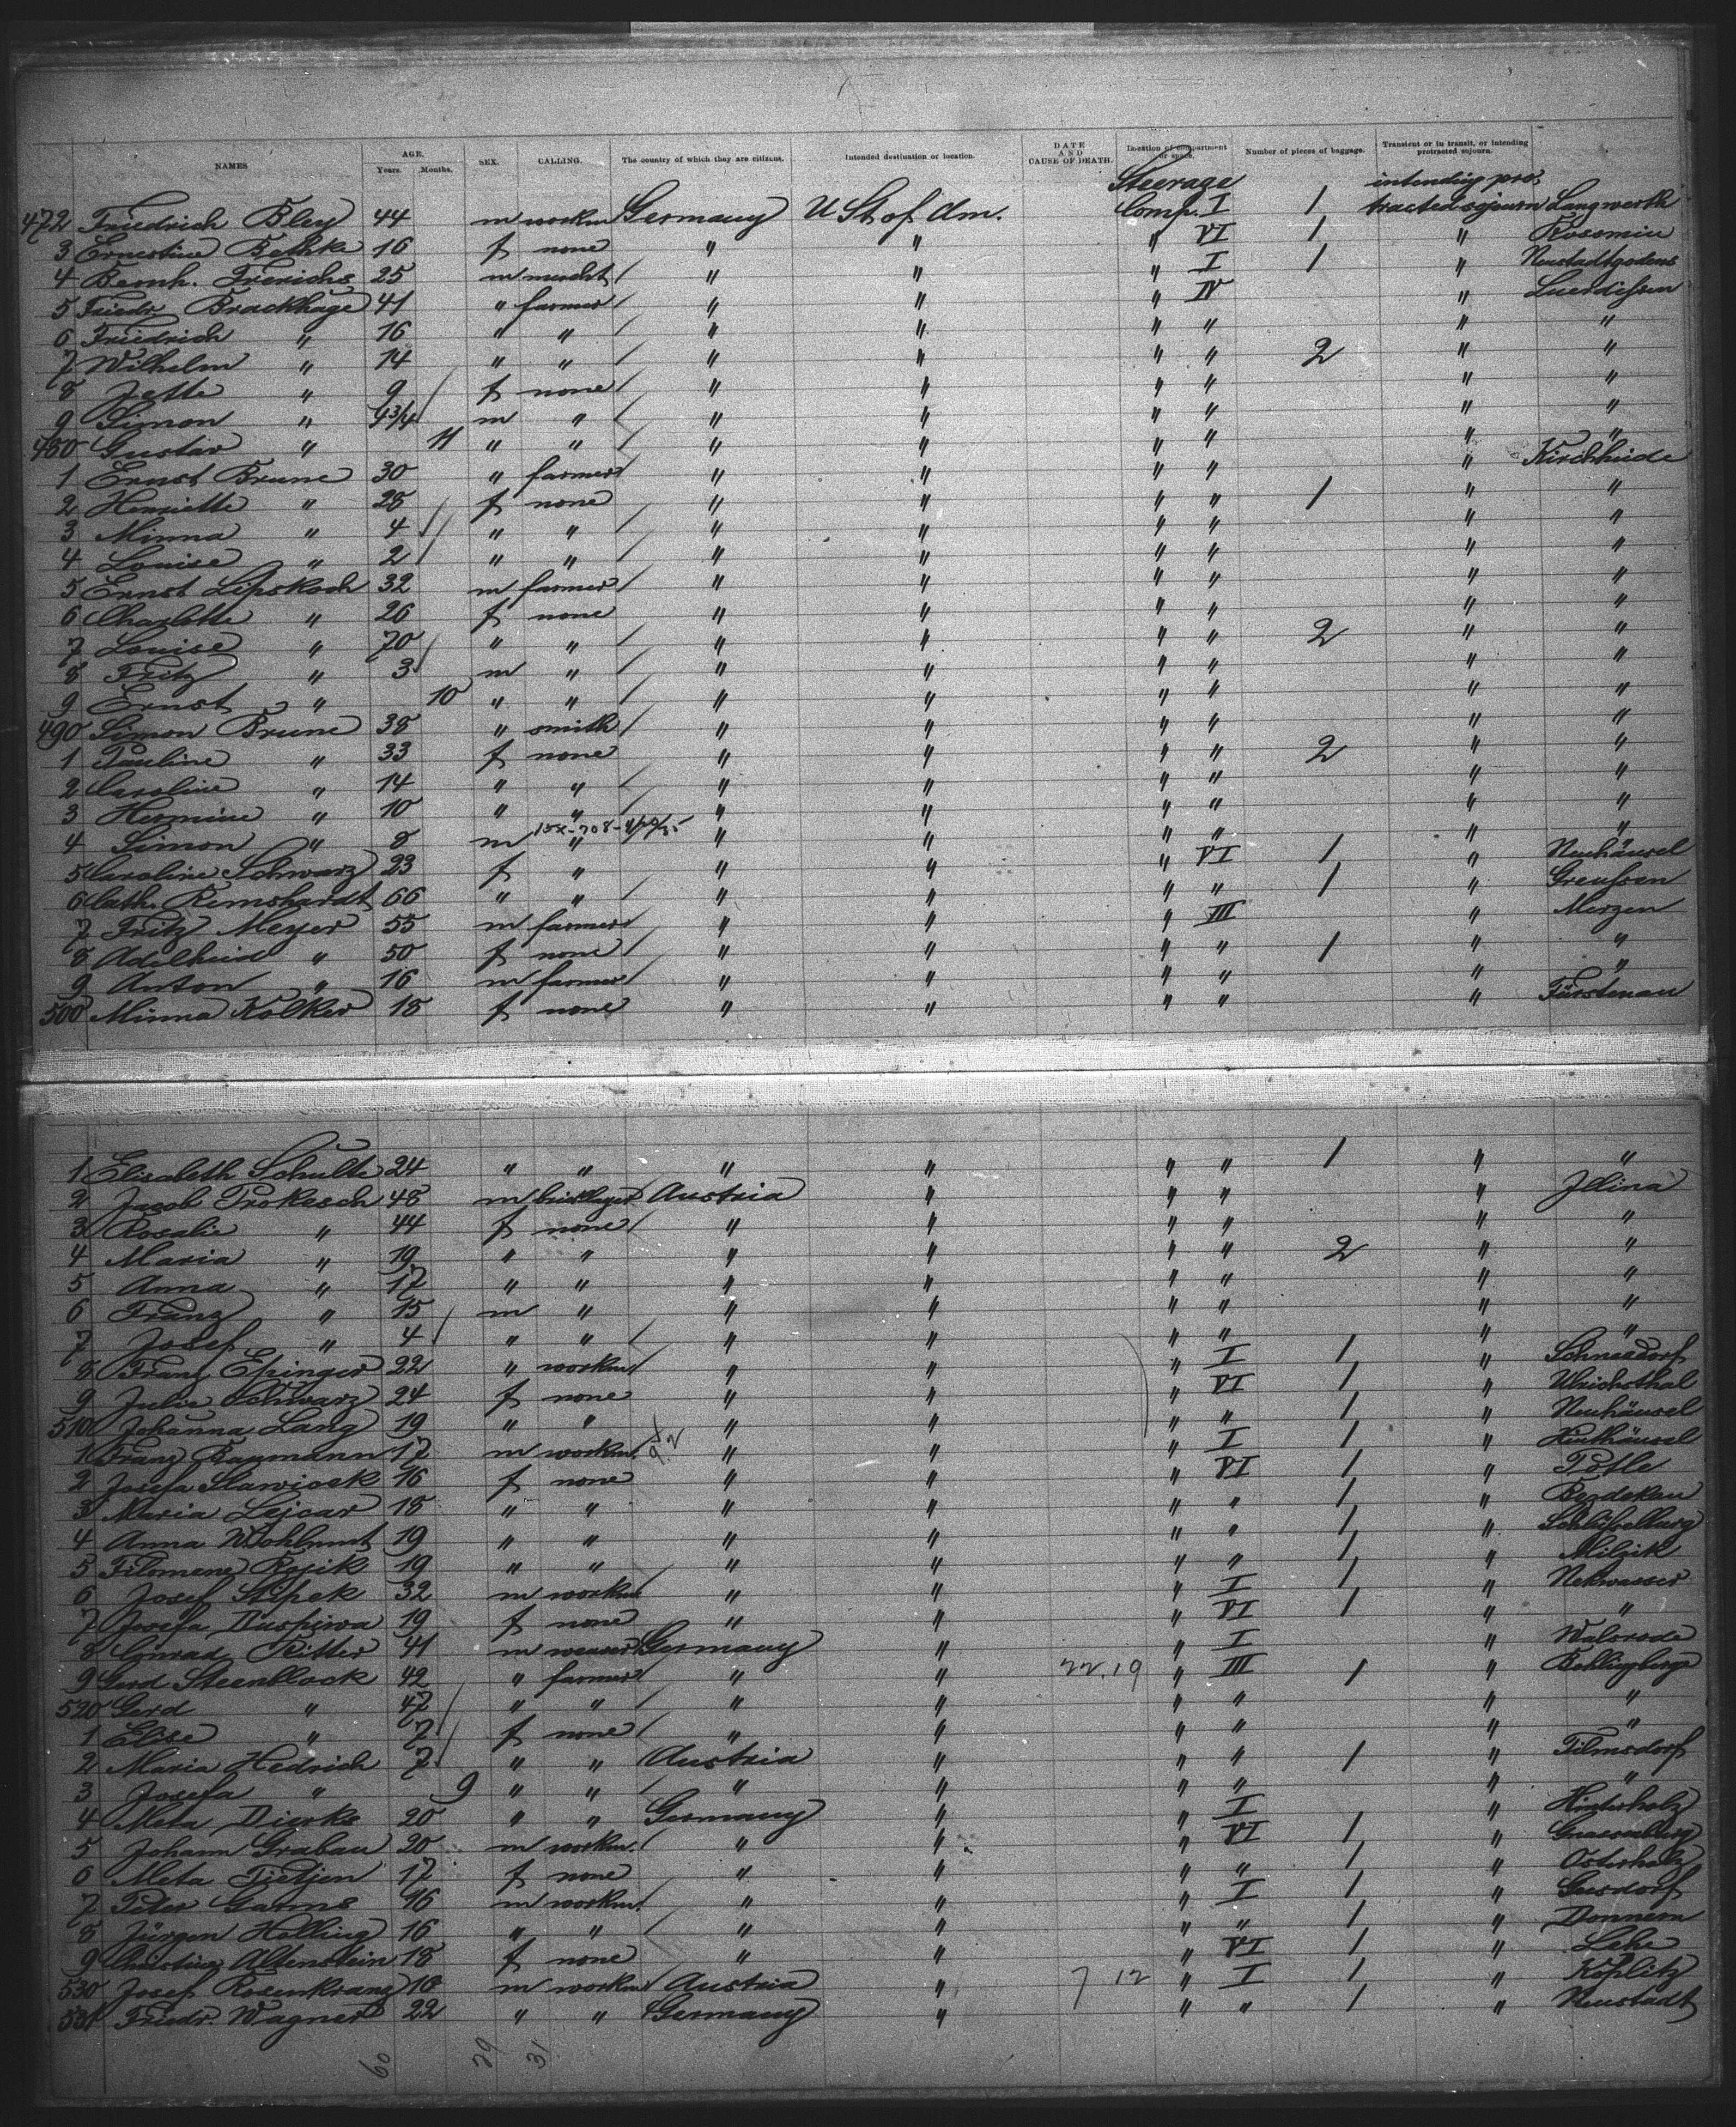 NAMES AGE. Years. Months. SEX. CALLING. The country of which they are citizens. Intended destination or location. DATE AND CAUSE OF DEATH. Location of compartment or space. Number of pieces of baggage. Transient or in transit, or intending protracted sojourn.
Steerage intending pro-
472 Friedrich Bley 44 m workm Germany U St of Am. Comp. I 1 tracted sojourn Langwerth
3 Ernestine Bethke 16 f none " " " VI 1 " Rossmin
4 Bernh. Frerichs 25 m mercht " " " I 1 " Neustadtgodens
5 Friedr. Brackhage 41 " farmer " " " IV " Luerdissen
6 Friedrich " 16 " " " " " " " "
7 Wilhelm " 14 " " " " " " 2 " "
8 Jette " 9 f none " " " " " "
9 Simon " 4 3/4 m " " " " " " "
480 Gustav " 11 " " " " " " " "
1 Ernst Brune 30 " farmer " " " " " Kirchheide
2 Henriette " 28 f none " " " " 1 " "
3 Minna " 4 " " " " " " " "
4 Louise " 2 " " " " " " " "
5 Ernst Lipskoch 32 m farmer " " " " " "
6 Charlotte " 26 f none " " " " " "
7 Louise " 70 " " " " " " 2 " "
8 Fritz " 3 m " " " " " " "
9 Ernst " 10 " " " " " " " "
490 Simon Brune 38 " smith " " " " " "
1 Pauline " 33 f none " " " " 2 " "
2 Caroline " 14 " " " " " " " "
3 Hermine " 10 " " " " " " " "
4 Simon " 8 m " " " " " " "
5 Caroline Schwarz 23 f " " " " VI 1 " Neuhäusel
6 Cath. Remshardt 66 " " " " " " 1 " Greussen
7 Fritz Meyer 55 m farmer " " " III " Merzen
8 Adelheid " 50 f none " " " " 1 " "
9 Anton " 16 m farmer " " " " " "
500 Minna Kolker 18 f none " " " " " Fürstenau
1 Elisabeth Schulte 24 " " " " " " 1 " "
2 Jacob Prokesch 48 m bricklayer Austria " " " " Jllina
3 Rosalie " 44 f none " " " " " "
4 Maria " 19 " " " " " " 2 " "
5 Anna " 17 " " " " " " " "
6 Franz " 15 m " " " " " " "
7 Josef " 4 " " " " " " " "
8 Franz Epinger 22 " workm " " " I 1 "
9 Julie Schwarz 24 f none " " " VI 1 " Ulrichsthal
510 Johanna Lang 19 " " " " " " 1 " Neuhäusel
1 Franz Baumann 17 m workm. " " " I 1 "
2 Josefa Slawicek 16 f none " " " VI 1 "
3 Maria Lejcar 18 " " " " " " 1 " Bezdekau
4 Anna Wohlmut 19 " " " " " " 1 " Schüsselburg
5 Filomene Rejik 19 " " " " " " 1 " Milzik
6 Josef Stipek 32 m workm " " " I 1 " Nekwasser
7 Josefa Duspiwa 19 f none " " " VI 1 " "
8 Conrad Ritter 41 m weaver Germany " " I " Walsrode
9 Gerd Steenblock 42 " farmer " " 22.19 " III 1 "
520 Gerd " 47 " " " " " " " "
1 Elise " 7 f none " " " " " "
2 Maria Hedrich 7 " " Austria " " " 1 " Tilmsdorf
3 Josefa " 9 " " " " " " " "
4 Meta Dierks 20 " " Germany " " I " Hinterholz
5 Johann Grabau 20 m workm. " " " VI 1 " Gnarrenburg
6 Meta Tietjen 17 f none " " " " 1 " Osterholz
7 Peter Garms 46 m workm. " " " I 1 "
8 Jürgen Holling 16 " " " " " " 1 " Donnern
9 Christine Altenstein 18 f none " " " VI 1 " Lehe
530 Josef Rosenkranz 18 m workm Austria " 7 12 " I 1 " Köplitz
531 Friedr. Wagner 22 " " Germany " " " 1 " Neustadt
60 29 31